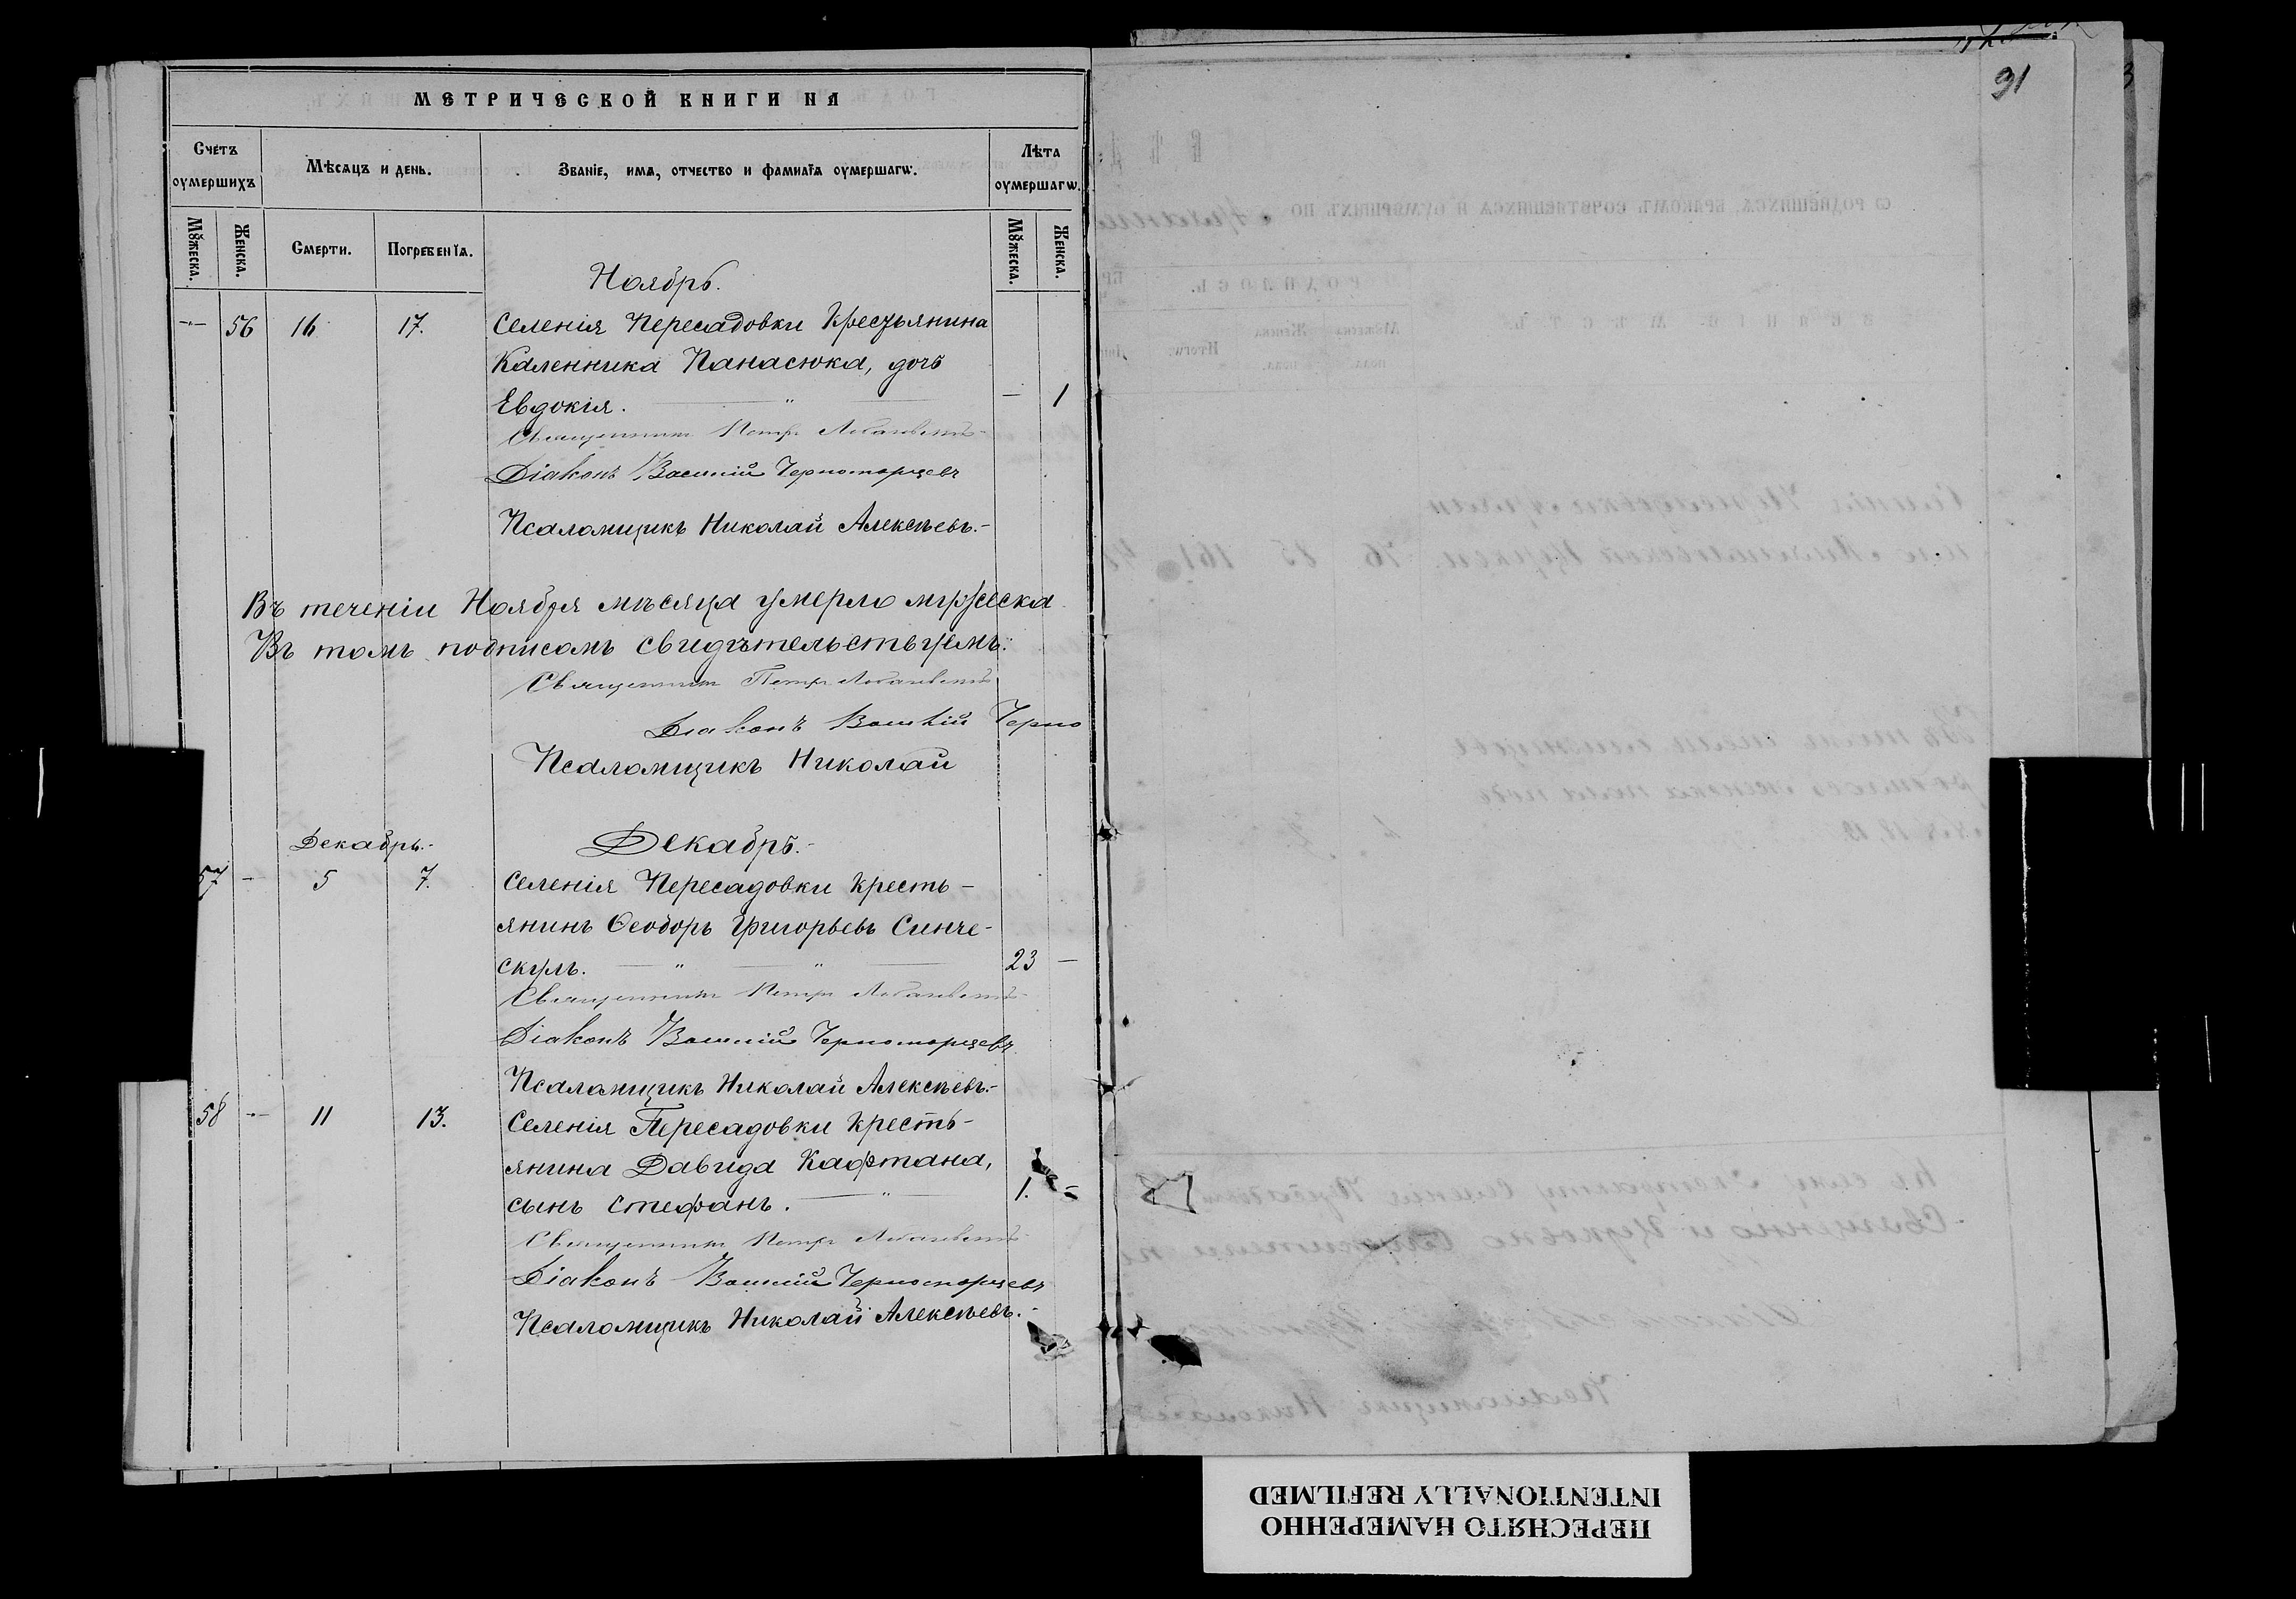 МЕТРИЧЕСКОЙ КНИГИ НА
Счетъ оумершихъ
Мѣсяцъ и день.
Званіе, имя, отчество и фамилія оумершагѡ.
Лѣта оумершагѡ.
Мꙋжеска. Женска. Смерти. Погребенія. Мꙋжеска. Женска.
Ноябрь.
— 56 16 17. Селенія Пересадовки Крестьянина
Каленника Панасюка, дочь
Евдокія. — „ — — 1
Священникъ Петръ
Діаконъ Василій Черноморцевъ
Псаломщикъ Николай Алексѣевъ.-
Въ теченіи Ноября мѣсяца умерло мужеска
Въ томъ подписомъ свидѣтельствуемъ:
Священникъ Петръ
Діаконъ Василій Черно
Псаломщикъ Николай
Декабрь.- Декабрь.-
57 — 5 7. Селенія Пересадовки кресть-
янинъ Ѳеодоръ Григорьевъ Синче-
скулъ. — „ — „ — 23 —
Священникъ Петръ
Діаконъ Василій Черноморцевъ
Псаломщикъ Николай Алексѣевъ.-
58 — 11 13. Селенія Пересадовки кресть-
янина Давида Кафтана,
сынъ Стефанъ. — „ — 1. —
Священникъ Петръ
Діаконъ Василій Черноморцевъ
Псаломщикъ Николай Алексѣевъ.-
91
ПЕРЕСНЯТО НАМЕРЕННО
INTENTIONALLY REFILMED